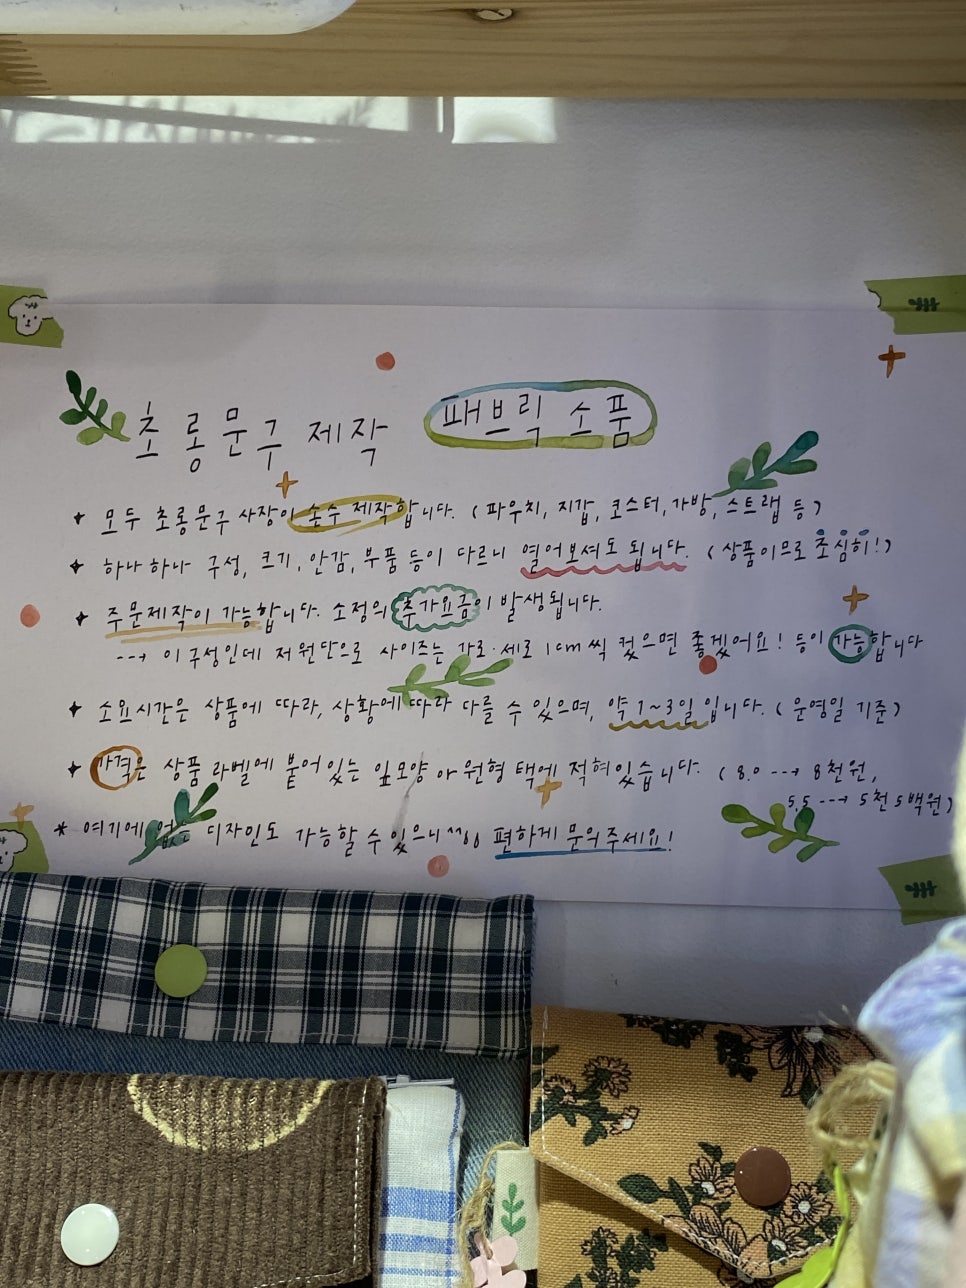 초롱문구 제작 패브릭 소품
✦ 모두 초롱문구 사장이 손수 제작합니다. (파우치, 지갑, 코스터, 가방, 스트랩 등)
✦ 하나하나 구성, 크기, 안감, 부품 등이 다르니 열어보셔도 됩니다. (상품이므로 조심히!)
✦ 주문제작이 가능합니다. 소정의 추가요금이 발생됩니다.
--→ 이 구성인데 저 원단으로 사이즈는 가로·세로 1cm씩 컸으면 좋겠어요! 등이 가능합니다
✦ 소요시간은 상품에 따라, 상황에 따라 다를 수 있으며, 약 1~3일입니다. (운영일 기준)
✦ 가격은 상품 라벨에 붙어있는 잎모양 or 원형 택에 적혀있습니다. (8.0 --→ 8천원,
5.5 --→ 5천5백원)
* 여기에 없는 디자인도 가능할 수 있으니 편하게 문의주세요!